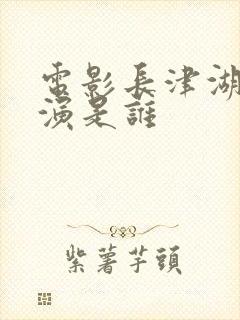 電影長津湖
演是誰
紫薯芋頭